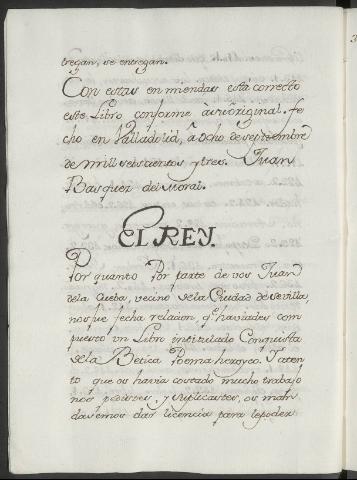 tregan, se entregan.
Con estas enmiendas está correcto
este Libro conforme à su original. fe
cho en Valladolid, à ocho de septiembre
de mill seiscientos y tres. Juan
Basquez del Moral.
El REY.
Por quanto Por parte de vos Juan
dela Cueba, vecino dela Ciudad de sevilla,
nos fue fecha relacion, q.e haviades com
puesto un Libro intitulado Conquista
dela Betica Poema heroyco. Y aten
to que os havia costado mucho trabajo
nos pedistes, y suplicastes, os man
dasemos dar licencia para lepoder